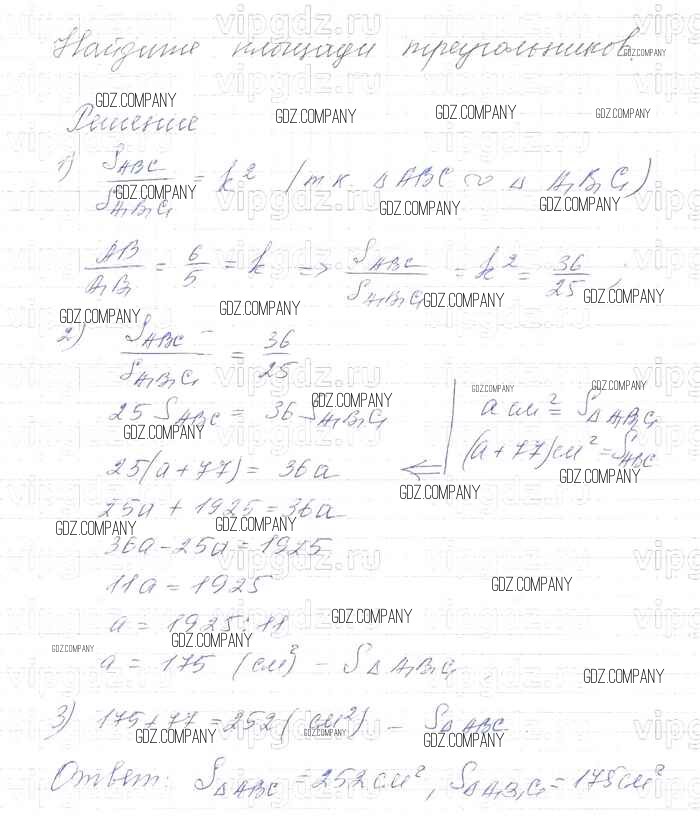 Найдите площади треугольников.
Решение
1) S_ABC / S_A₁B₁C₁ = k² (т.к. △ABC ∾ △A₁B₁C₁)
AB / A₁B₁ = 6/5 = k => S_ABC / S_A₁B₁C₁ = k² = 36/25
2) S_ABC / S_A₁B₁C₁ = 36/25
25 S_ABC = 36 S_A₁B₁C₁
a см² = S_△A₁B₁C₁
(a + 77) см² = S_ABC
25(a + 77) = 36a
25a + 1925 = 36a
36a - 25a = 1925
11a = 1925
a = 1925 : 11
a = 175 (см²) - S_△A₁B₁C₁
3) 175 + 77 = 252 (см²) - S_△ABC
Ответ: S_△ABC = 252 см², S_△A₁B₁C₁ = 175 см²
GDZ.COMPANY
vipgdz.ru